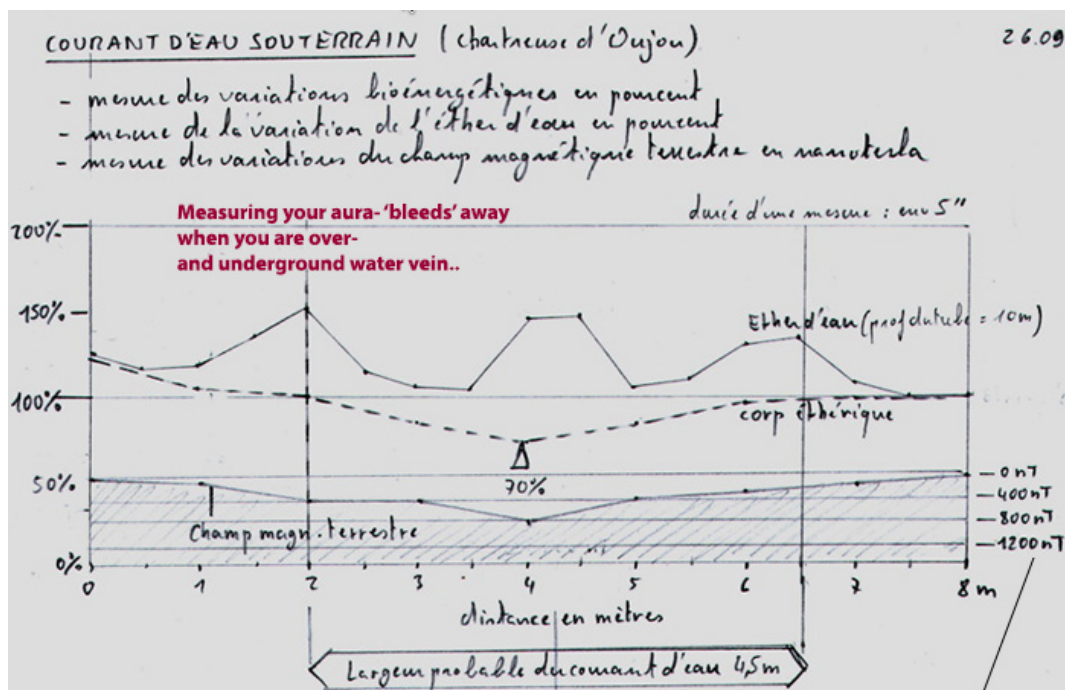 COURANT D'EAU SOUTERRAIN (Chartreuse d'Oujon) 26.09
- mesure des variations bioénergétiques en pourcent
- mesure de la variation de l'éther d'eau en pourcent
- mesure des variations du champ magnétique terrestre en nanotesla
Measuring your aura- 'bleeds' away
when you are over-
and underground water vein..
durée d'une mesure : env 5"
200%
150%
Ether d'eau (prof du tube = 10m)
100%
corp éthérique
50%
70%
0 nT
400nT
800nT
1200nT
Champ magn. terrestre
0%
0 1 2 3 4 5 6 7 8 m
distance en mètres
Largeur probable du courant d'eau 4,5m